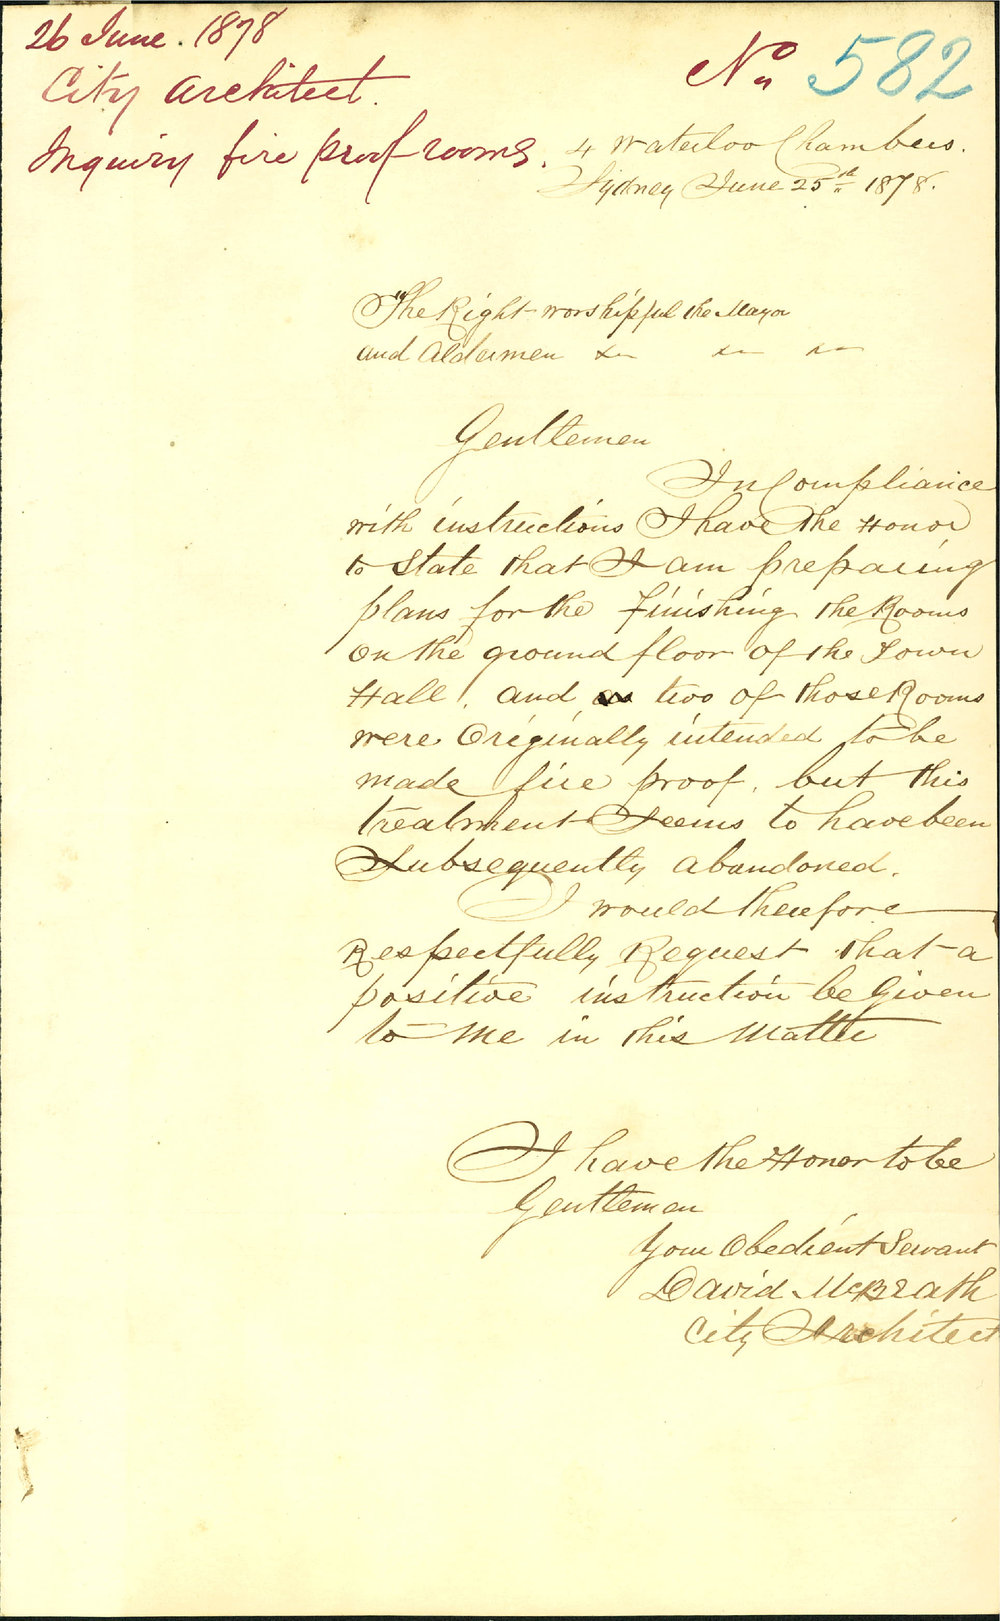 26 June. 1878
City Architect.
Inquiry fire proof rooms.
No 582
4 Waterloo Chambers.
Sydney June 25th 1878.
The Right worshipful the Mayor
and Aldermen &c &c &c
Gentlemen
In Compliance
with instructions I have the Honor
to State that I am preparing
plans for the Finishing the Rooms
on the ground floor of the Town
Hall, and as two of those Rooms
were Originally intended to be
made fire proof, but this
treatment Seems to have been
Subsequently abandoned.
I would therefore
Respectfully Request that a
positive instruction be Given
to Me in this Matter
I have the Honor to be
Gentlemen
Your Obedient Servant
David McBeath
City Architect